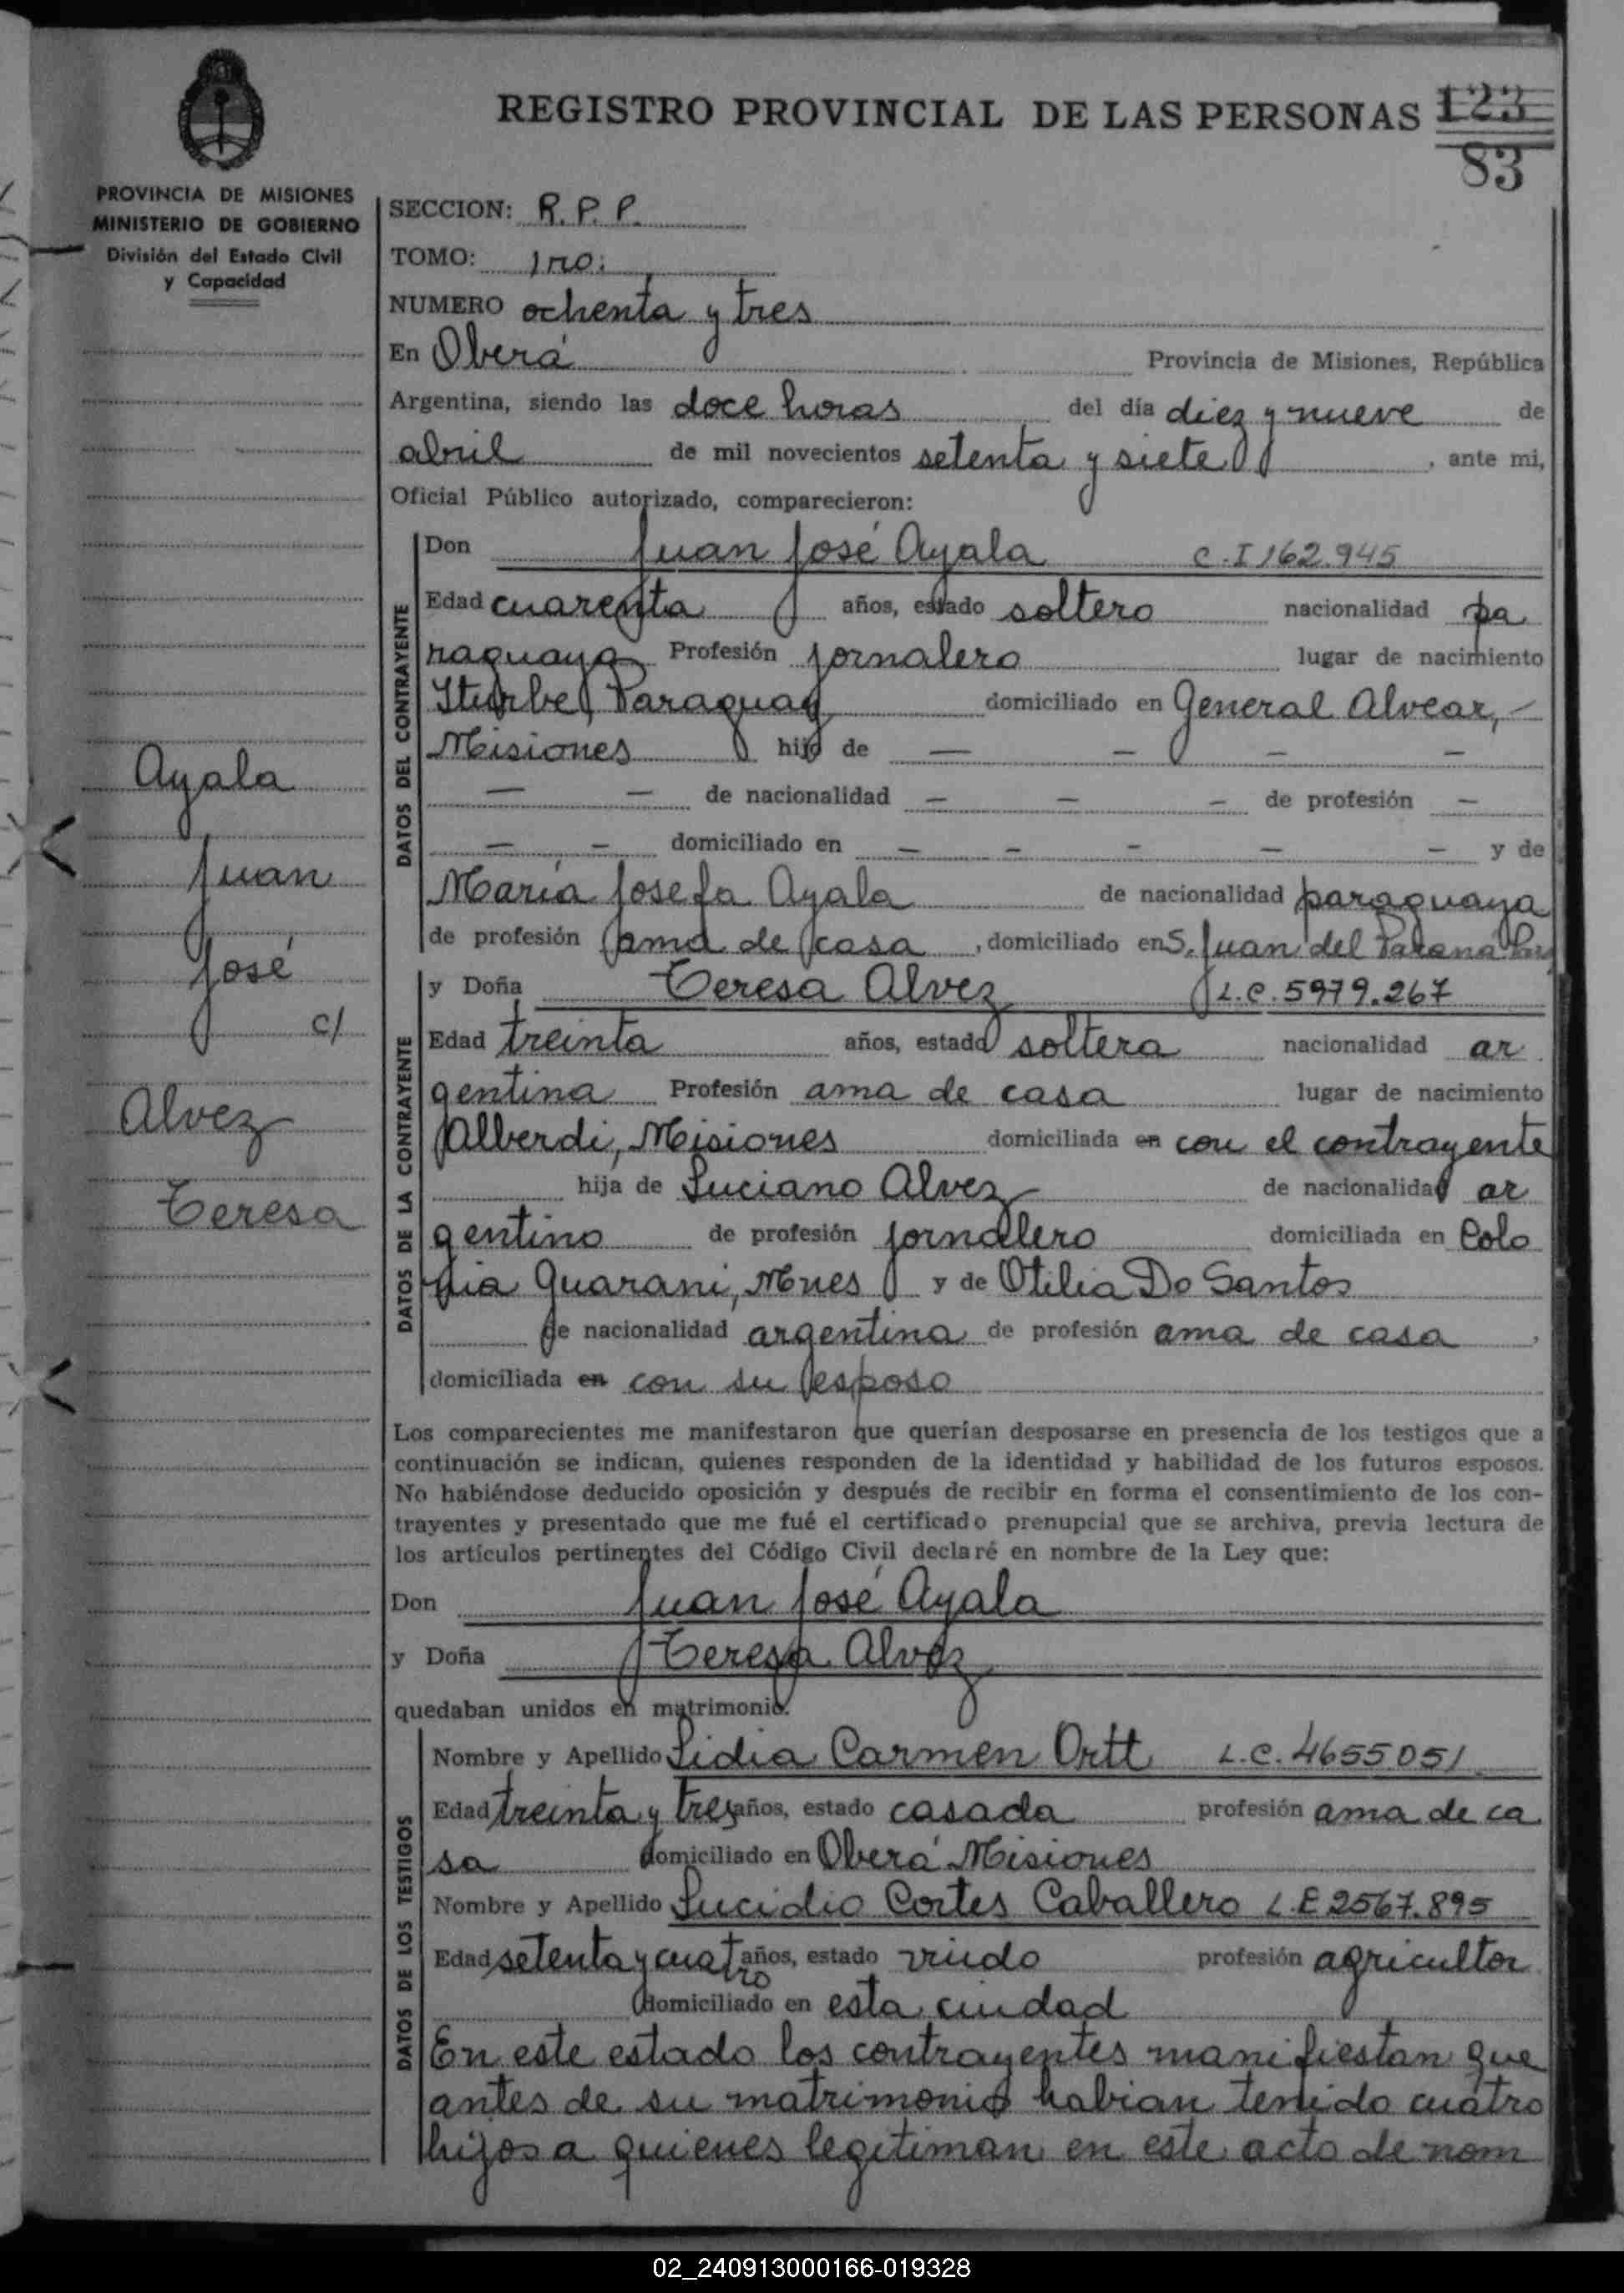 REGISTRO PROVINCIAL DE LAS PERSONAS 123
83
PROVINCIA DE MISIONES
MINISTERIO DE GOBIERNO
División del Estado Civil
y Capacidad
SECCION: R. P. P.
TOMO: 1ro.
NUMERO ochenta y tres
En Oberá Provincia de Misiones, República
Argentina, siendo las doce horas del día diez y nueve de
abril de mil novecientos setenta y siete, ante mi,
Oficial Público autorizado, comparecieron:
DATOS DEL CONTRAYENTE
Don Juan José Ayala C.I 162.945
Edad cuarenta años, estado soltero nacionalidad pa
raguaya Profesión jornalero lugar de nacimiento
Iturbe, Paraguay domiciliado en General Alvear, -
Misiones hijo de — — — —
— — de nacionalidad — — — de profesión —
— — domiciliado en — — — — — y de
María Josefa Ayala de nacionalidad paraguaya
de profesión ama de casa, domiciliado en S. Juan del Paraná
DATOS DE LA CONTRAYENTE
y Doña Teresa Alvez L.C. 5979.267
Edad treinta años, estado soltera nacionalidad ar
gentina Profesión ama de casa lugar de nacimiento
Alberdi, Misiones domiciliada en con el contrayente
hija de Luciano Alvez de nacionalidad ar
gentino de profesión jornalero domiciliada en Colo
nia Guarani, Mnes y de Otilia Do Santos
de nacionalidad argentina de profesión ama de casa,
domiciliada en con su esposo
Ayala
Juan
José
c/
Alvez
Teresa
Los comparecientes me manifestaron que querían desposarse en presencia de los testigos que a
continuación se indican, quienes responden de la identidad y habilidad de los futuros esposos.
No habiéndose deducido oposición y después de recibir en forma el consentimiento de los con-
trayentes y presentado que me fué el certificado prenupcial que se archiva, previa lectura de
los artículos pertinentes del Código Civil declaré en nombre de la Ley que:
Don Juan José Ayala
y Doña Teresa Alvez
quedaban unidos en matrimonio.
DATOS DE LOS TESTIGOS
Nombre y Apellido Lidia Carmen Ortt L.C. 4655.051
Edad treinta y tres años, estado casada profesión ama de ca
sa domiciliado en Oberá Misiones
Nombre y Apellido Lucidio Cortes Caballero L.E 2567.895
Edad setenta y cuatro años, estado viudo profesión agricultor
domiciliado en esta ciudad
En este estado los contrayentes manifiestan que
antes de su matrimonio habian tenido cuatro
hijos a quienes legitiman en este acto de nom
02_240913000166-019328